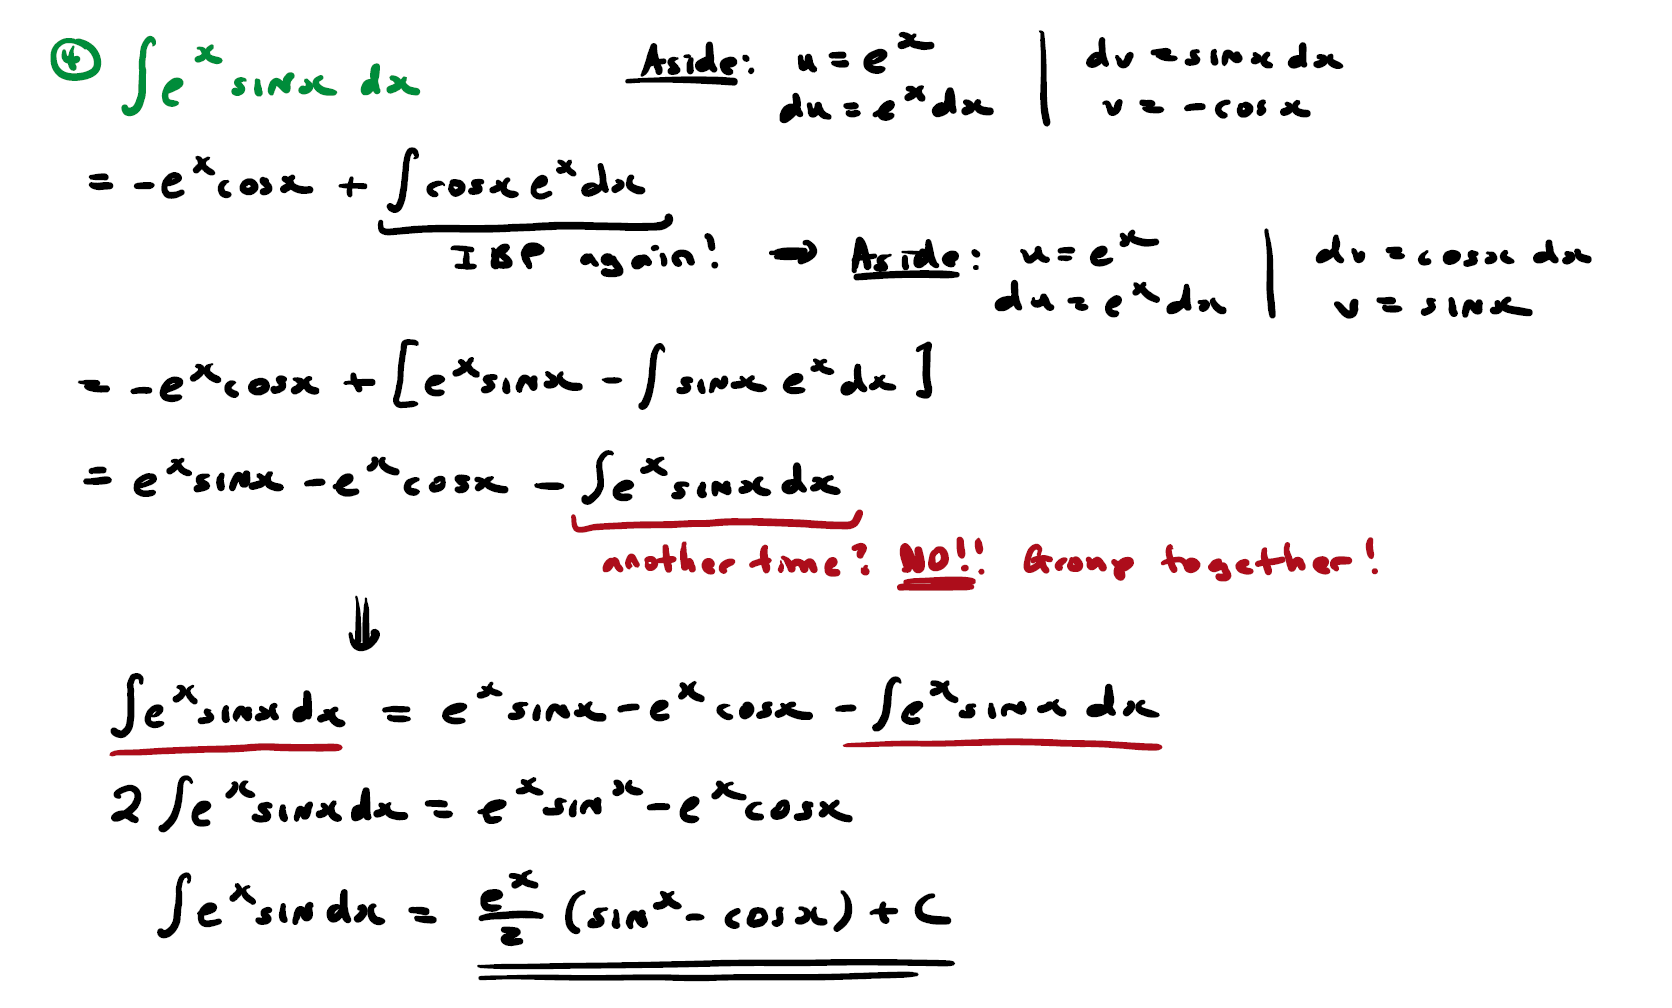 ④ ∫eˣ sinx dx    Aside: u = eˣ | dv = sinx dx
du = eˣ dx | v = -cosx
= -eˣ cosx + ∫cosx eˣ dx
IBP again! → Aside: u = eˣ | dv = cosx dx
du = eˣ dx | v = sinx
= -eˣ cosx + [eˣ sinx - ∫ sinx eˣ dx]
= eˣ sinx - eˣ cosx - ∫eˣ sinx dx
another time? NO!! Group together!
⇓
∫eˣ sinx dx = eˣ sinx - eˣ cosx - ∫eˣ sinx dx
2 ∫eˣ sinx dx = eˣ sinˣ - eˣ cosx
∫eˣ sin dx = eˣ/2 (sinˣ - cosx) + C